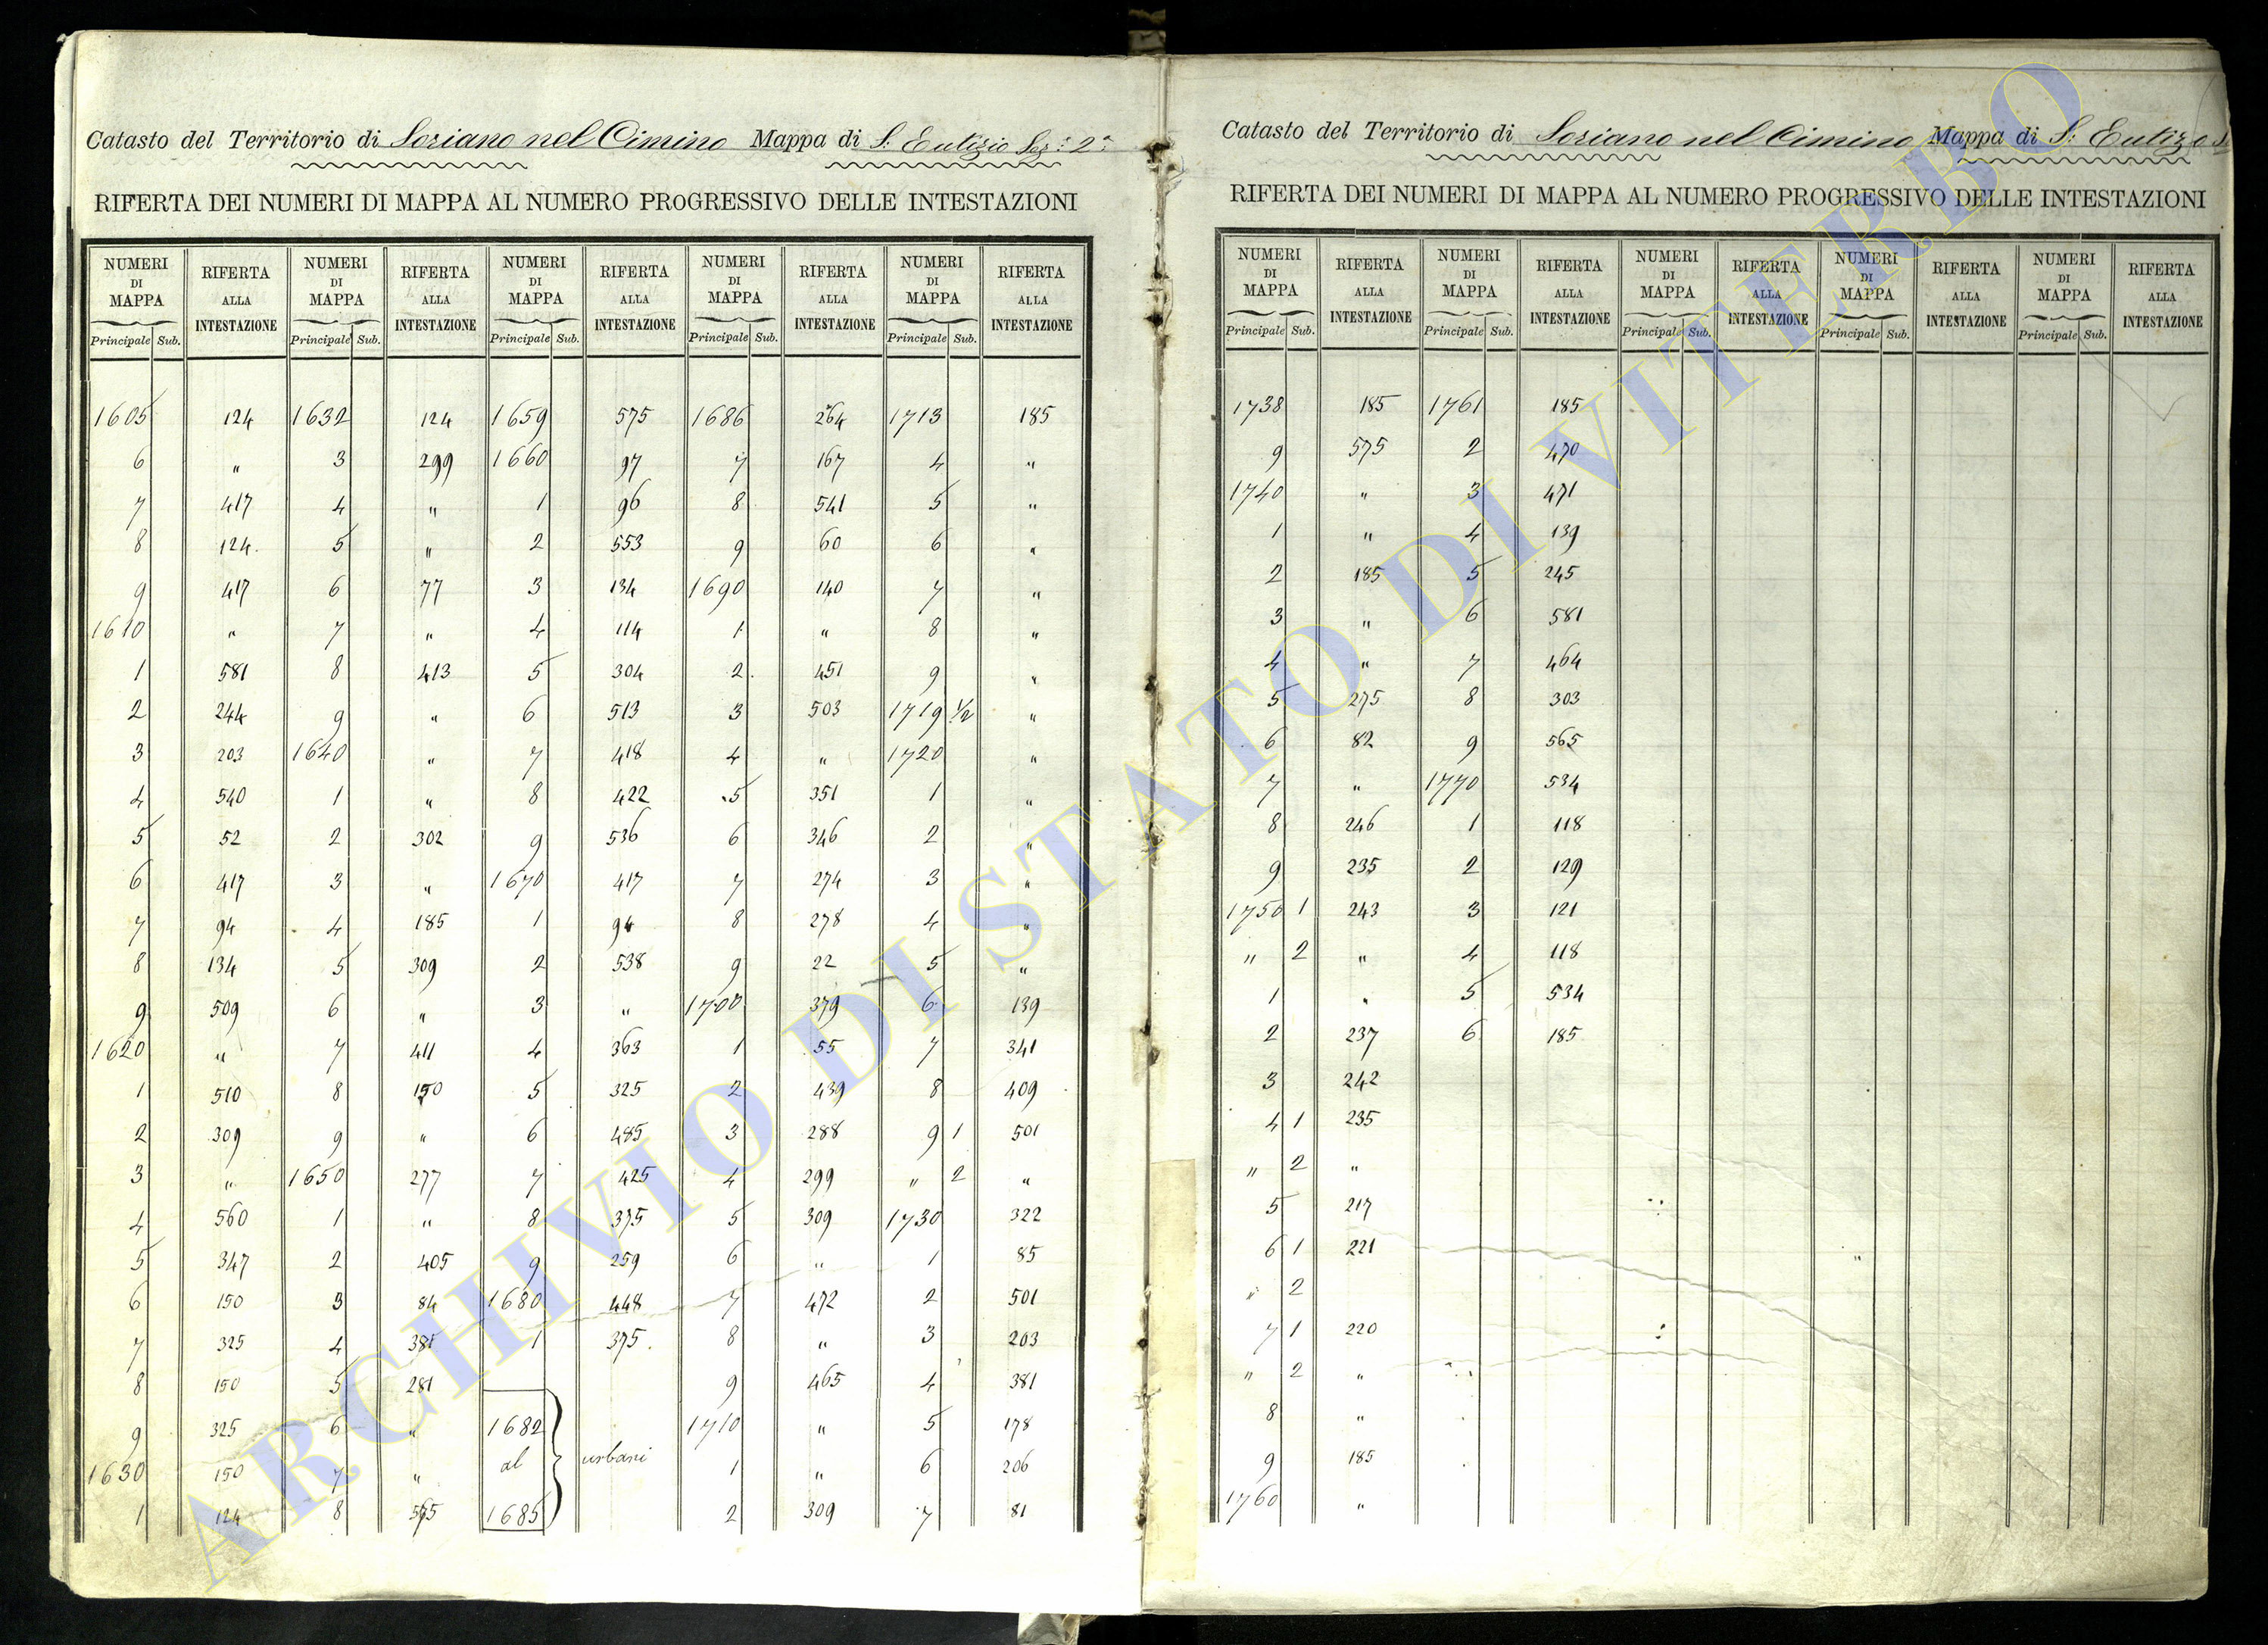 Catasto del Territorio di Soriano nel Cimino Mappa di S. Eutizio Sez: 2ª
RIFERTA DEI NUMERI DI MAPPA AL NUMERO PROGRESSIVO DELLE INTESTAZIONI
NUMERI DI MAPPA RIFERTA ALLA INTESTAZIONE NUMERI DI MAPPA RIFERTA ALLA INTESTAZIONE NUMERI DI MAPPA RIFERTA ALLA INTESTAZIONE NUMERI DI MAPPA RIFERTA ALLA INTESTAZIONE NUMERI DI MAPPA RIFERTA ALLA INTESTAZIONE
Principale Sub. Principale Sub. Principale Sub. Principale Sub. Principale Sub.
1605 124 1632 124 1659 575 1686 264 1713 185
6 " 3 299 1660 97 7 167 4 "
7 417 4 " 1 96 8 541 5 "
8 124. 5 " 2 553 9 60 6 "
9 417 6 77 3 134 1690 140 7 "
1610 " 7 " 4 114 1 " 8 "
1 581 8 413 5 304 2. 451 9 "
2 244 9 " 6 513 3 503 1719 1/2 "
3 203 1640 " 7 418 4 " 1720 "
4 540 1 " 8 422 5 351 1 "
5 52 2 302 9 536 6 346 2 "
6 417 3 " 1670 417 7 274 3 "
7 94 4 185 1 94 8 278 4 "
8 134 5 309 2 538 9 22 5 "
9 509 6 " 3 " 1700 379 6 139
1620 " 7 411 4 363 1 55 7 341
1 510 8 150 5 325 2 439 8 409
2 309 9 " 6 485 3 288 9 1 501
3 " 1650 277 7 425 4 299 " 2 "
4 560 1 " 8 375 5 309 1730 322
5 347 2 405 9 259 6 " 1 85
6 150 3 84 1680 448 7 472 2 501
7 325 4 381 1 375. 8 " 3 203
8 150 5 281 9 465 4 381
9 325 6 " 1682 1710 " 5 178
1630 150 7 " al urbani 1 " 6 206
1 124 8 565 1685 2 309 7 81
Catasto del Territorio di Soriano nel Cimino Mappa di S: Eutizio
RIFERTA DEI NUMERI DI MAPPA AL NUMERO PROGRESSIVO DELLE INTESTAZIONI
NUMERI DI MAPPA RIFERTA ALLA INTESTAZIONE NUMERI DI MAPPA RIFERTA ALLA INTESTAZIONE NUMERI DI MAPPA RIFERTA ALLA INTESTAZIONE NUMERI DI MAPPA RIFERTA ALLA INTESTAZIONE NUMERI DI MAPPA RIFERTA ALLA INTESTAZIONE
Principale Sub. Principale Sub. Principale Sub. Principale Sub. Principale Sub.
1738 185 1761 185
9 575 2 470
1740 " 3 471
1 " 4 139
2 185 5 245
3 " 6 581
4 " 7 464
5 275 8 303
6 82 9 565
7 " 1770 534
8 246 1 118
9 235 2 129
1750 1 243 3 121
" 2 " 4 118
1 " 5 534
2 237 6 185
3 242
4 1 235
" 2 "
5 217
6 1 221
" 2
7 1 220
" 2 "
8 "
9 185
1760 "
ARCHIVIO DI STATO DI VITERBO